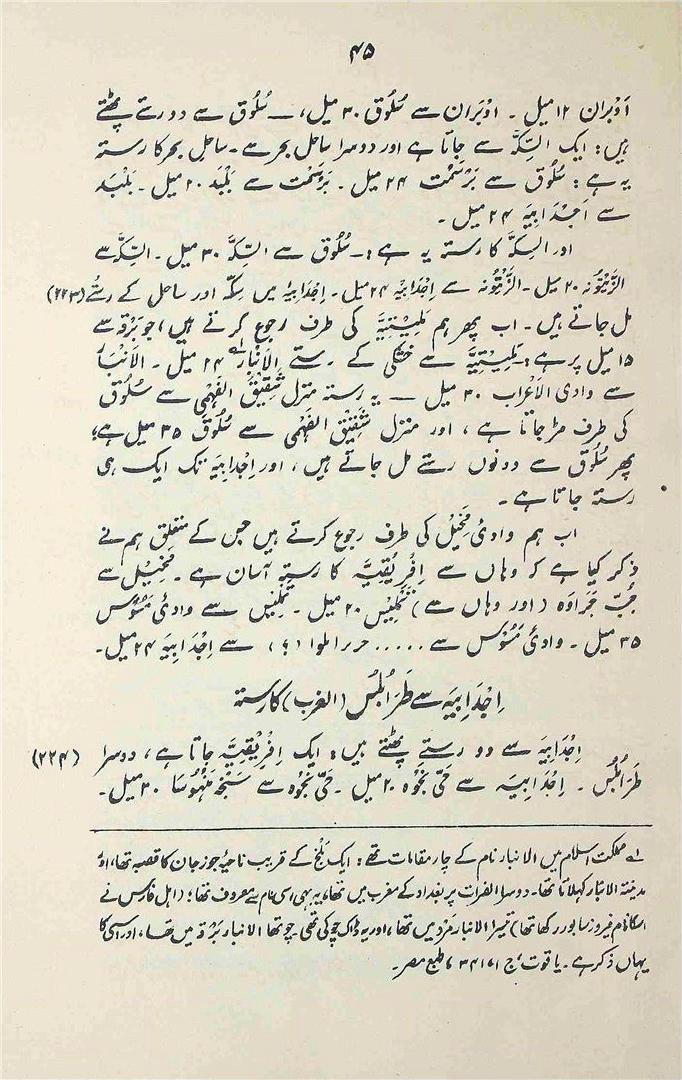 ۴۵
اَوْبران ۱۲ میل ۔ اوْبَران سے سُلُوق ۳۰ میل، ــ سُلُوق سے دو رستے پھٹتے
ہیں: ایک السِّکَّہ سے جاتا ہے اور دوسرا ساحل بحر سے ۔ ساحلِ بحر کا رستہ
یہ ہے : سُلُوق سے بَرْسَمْت ۲۴ میل ۔ بَرسَمْت سے بَلْبَد ۲۰ میل ۔ بَلْبَد
سے اَجْدَابِیَہ ۲۴ میل ۔
اور السِکَّہ کا رستہ یہ ہے :۔ سُلُوق سے السِّکَّہ ۳۰ میل ۔ السِکَّہ سے
الزَّیْتُونہ ۲۰ میل ۔ الزَّیْتُونہ سے اِجْدَابِیَہ ۲۴ میل ۔ اِجْدَابِیَہ میں سِکّہ اور ساحل کے رستے (۲۲۳)
مل جاتے ہیں ۔ اب پھر ہم مَلِیْتِیَّہ کی طرف رجوع کرتے ہیں، جو بَرْقَہ سے
۱۵ میل پر ہے :۔ مَلِیْتِیَّہ سے خشکی کے رستے الاَنْبَار لہ ۲۴ میل ۔ الاَنْبَار
سے وادی الاَعْراب ۳۰ میل ــ یہ رستہ منزل شَقِیْقُ الفَہْمِی سے سُلُوق
کی طرف مڑ جاتا ہے ، اور منزل شَقِیْق الفَہْمِی سے سُلُوق ۳۵ میل ہے؛
پھر سُلُوق سے دونوں رستے مل جاتے ہیں ، اور اِجْدَابِیَہ تک ایک ہی
رستہ جاتا ہے ۔
اب ہم وادئ مُخِیْل کی طرف رجوع کرتے ہیں جس کے متعلق ہم نے
ذکر کیا ہے کہ وہاں سے اِفْرِیْقِیَّہ کا رستہ آسان ہے ۔ مُخِیْل سے
جُبّ جَرَاوَہ (اور وہاں سے) تَمْلِیْس ۲۰ میل ۔ تَمْلِیْس سے وادئ مَسُوس
۳۵ میل ۔ وادئ مَسُوس سے ..... حریرا لموا (؟) سے اِجْدَابِیَہ ۲۴ میل ۔
اِجْدَابِیَہ سے طَرَابُلُسْ (الغرب) کا رستہ
اِجْدَابِیَہ سے دو رستے پھٹتے ہیں: ایک اِفْرِیْقِیَّہ جاتا ہے ، دوسرا (۲۲۴)
طَرَابُلُسْ ۔ اِجْدَابِیَہ سے حَیَّ نَجُوہ ۲۰ میل ۔ حَیَّ نَجُوہ سے سَبَخَہ مَنْہُوسَا ۳۰ میل ۔
لہ مملکت اسلام میں الانبار نام کے چار مقامات تھے : ایک بَلْخ کے قریب ناحیۂ جوزجان کا قصبہ تھا، اور
مدینۃ الانبار کہلاتا تھا۔ دوسرا الفرات پر بغداد کے مغرب میں تھا، یہ بھی اسی نام سے معروف تھا؛ (اہل فارس نے
اسکا نام فیروز سابور رکھا تھا) تیسرا الانبار مَرْو میں تھا، اور یہ ڈاک چوکی تھی ۔ چوتھا الانبار بَرْقَہ میں تھا، اور اسی کا
یہاں ذکر ہے ۔ یاقوت؛ ج ۱، ۳۴۱، طبع مصر ۔